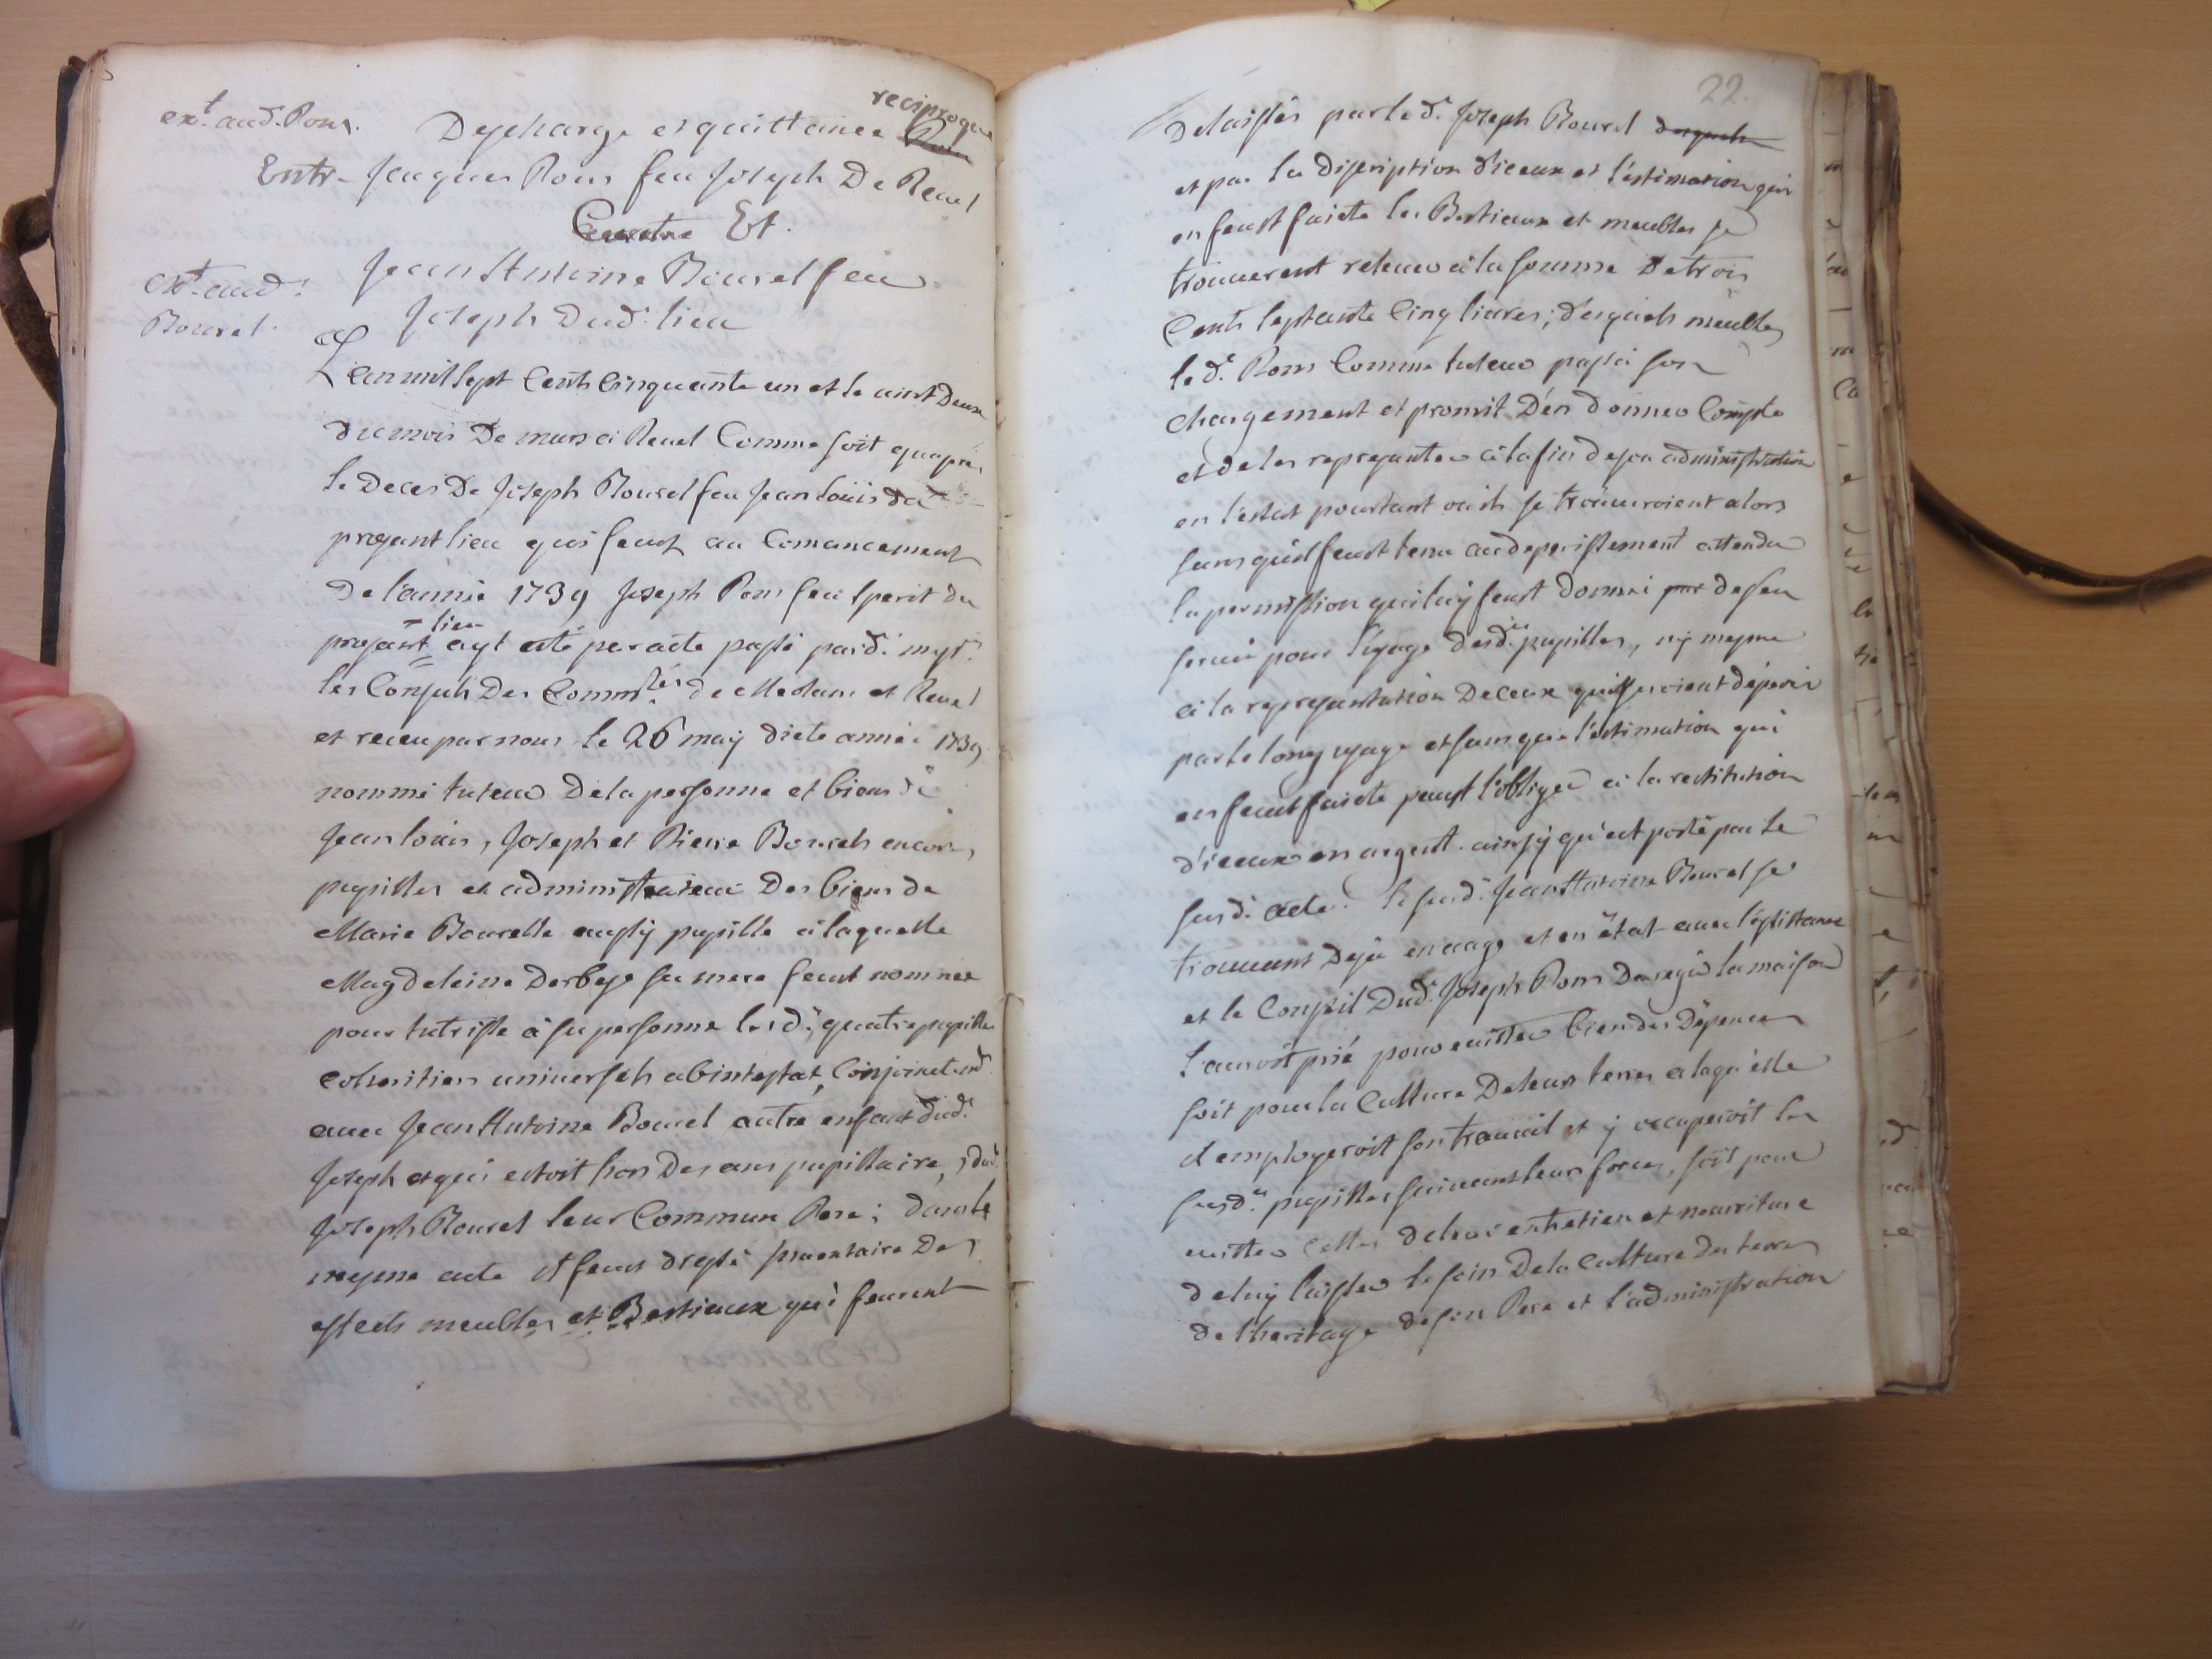 ext. aud. Pons.
Depcharge et quittance reciproque
Entre Jacques Pons feu Joseph De Revel
Contre Et.
ext. aud.
Bourel.
Jean Antoine Bourel feu
Joseph Dud. lieu
L'an mil sept Cents Cinquante un et le vint Deux
du mois De mars a Revel Comme soit qu'après
le Deces De Joseph Bourel feu Jean Louis du
prezant lieu qui feust au Comancement
De l'année 1739 Joseph Pons feu Sperit du
prezant lieu ayt esté par acte passé pard. myt.
les Consuls Des Comm.tés de Meolans et Revel
et receu par nous le 26 may dicte année 1739
nommé tuteur De la personne et biens de
Jean Louis, Joseph et Pierre Bourels encore
pupilles et administrateur Des biens de
Marie Bourelle aussy pupille a laquelle
Magdeleine Derbeze sa mere feust nommée
pour tutrisse à sa personne lesd. quatre pupilles
coheritiers universels abintestat, Conjoinctemt
avec Jean Antoine Bourel autre enfant dud.
Joseph et qui estoit hors Des ans pupillaire, dud.
Joseph Bourel leur Commun Pere; dans le
mesme acte il feust dressé Inventaire Des
effects meubles et Bestieaux qui feurent
22.
Delaissés par led. Joseph Bourel desquels
et par la discription d'iceux et l'estimation qui
en feust faicte les Bestieaux et meubles se
trouverent relever à la somme De trois
Cents septante Cinq livres; desquels meubles
led. Pons Comme tuteur passa son
chargement et promit D'en donner Compte
et de les reprezanter à la fin de son administration
en l'estat pourtant où ils se trouveroient alors
sans qu'il feust tenu au deperissement attendu
la permission qui luy feust donnée par de s'en
servir pour l'uzage desd. pupilles, ny mesme
à la reprezantation De ceux qui seroient déperis
par le long uzage et sans que l'estimation qui
en feust faicte peust l'obliger à la restitution
d'iceux en argent. ainsy qu'est porté par le
susd. acte. le susd. Jean Antoine Bourel se
trouvant Deja en aage et en état avec l'assistance
et le Conseil Dud. Joseph Pons De regir la maison
l'auroit prié pour evitter bien des Dépences
soit pour la Culture De leurs terres a laquelle
il employeroit son travail et y occuperoit les
susd. pupilles suivant leurs forces, soit pour
evitter celles de leur entretien et nourriture
de luy laisser le soin De la Culture Des terres
de l'heritage de son Pere et l'administration